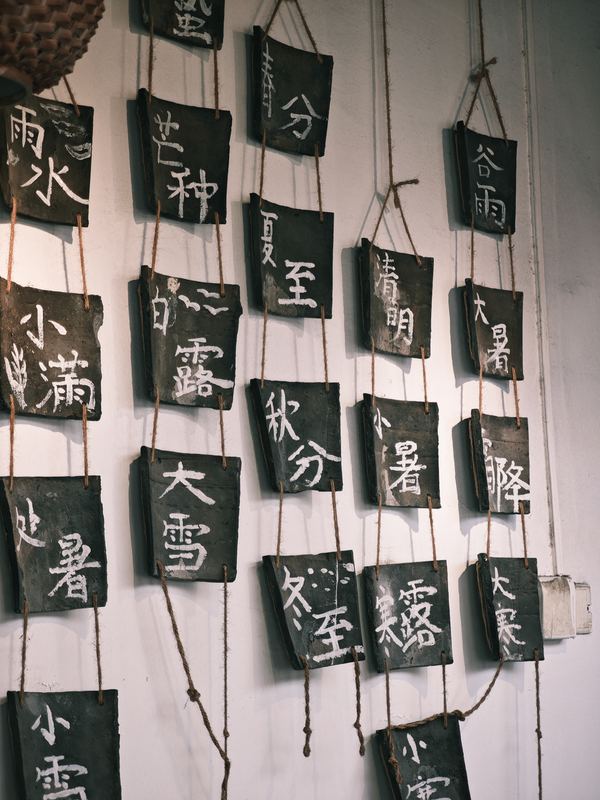 雨水
小满
处暑
小雪
蛰
芒种
白露
大雪
春分
夏至
秋分
冬至
清明
小暑
寒露
小寒
谷雨
大暑
降
大寒